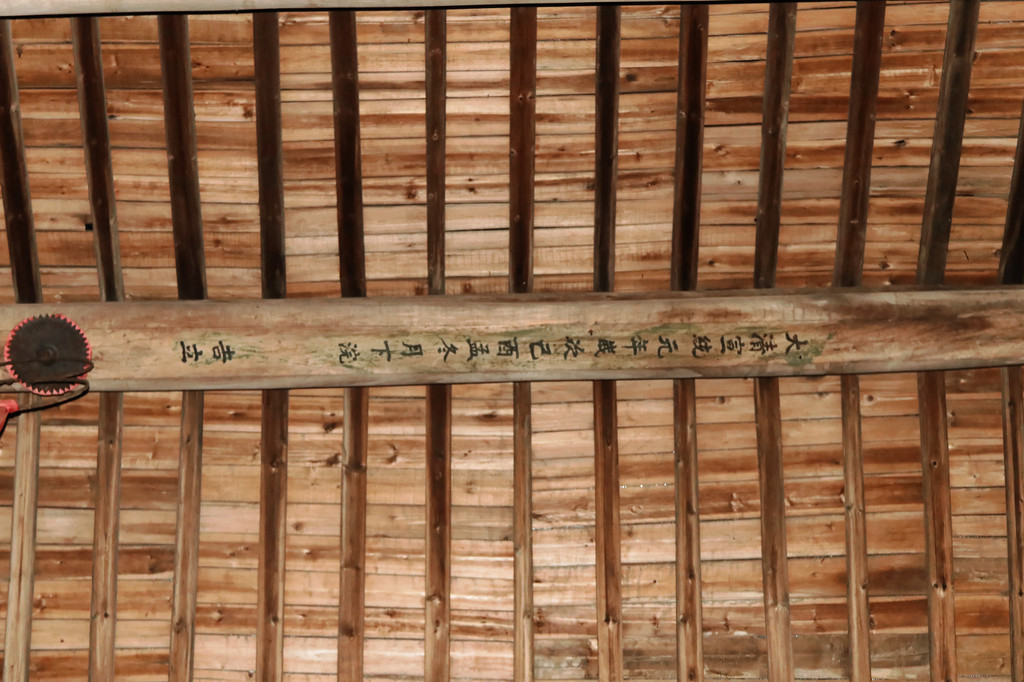 大清宣統元年歲次己酉孟冬月十浣吉立